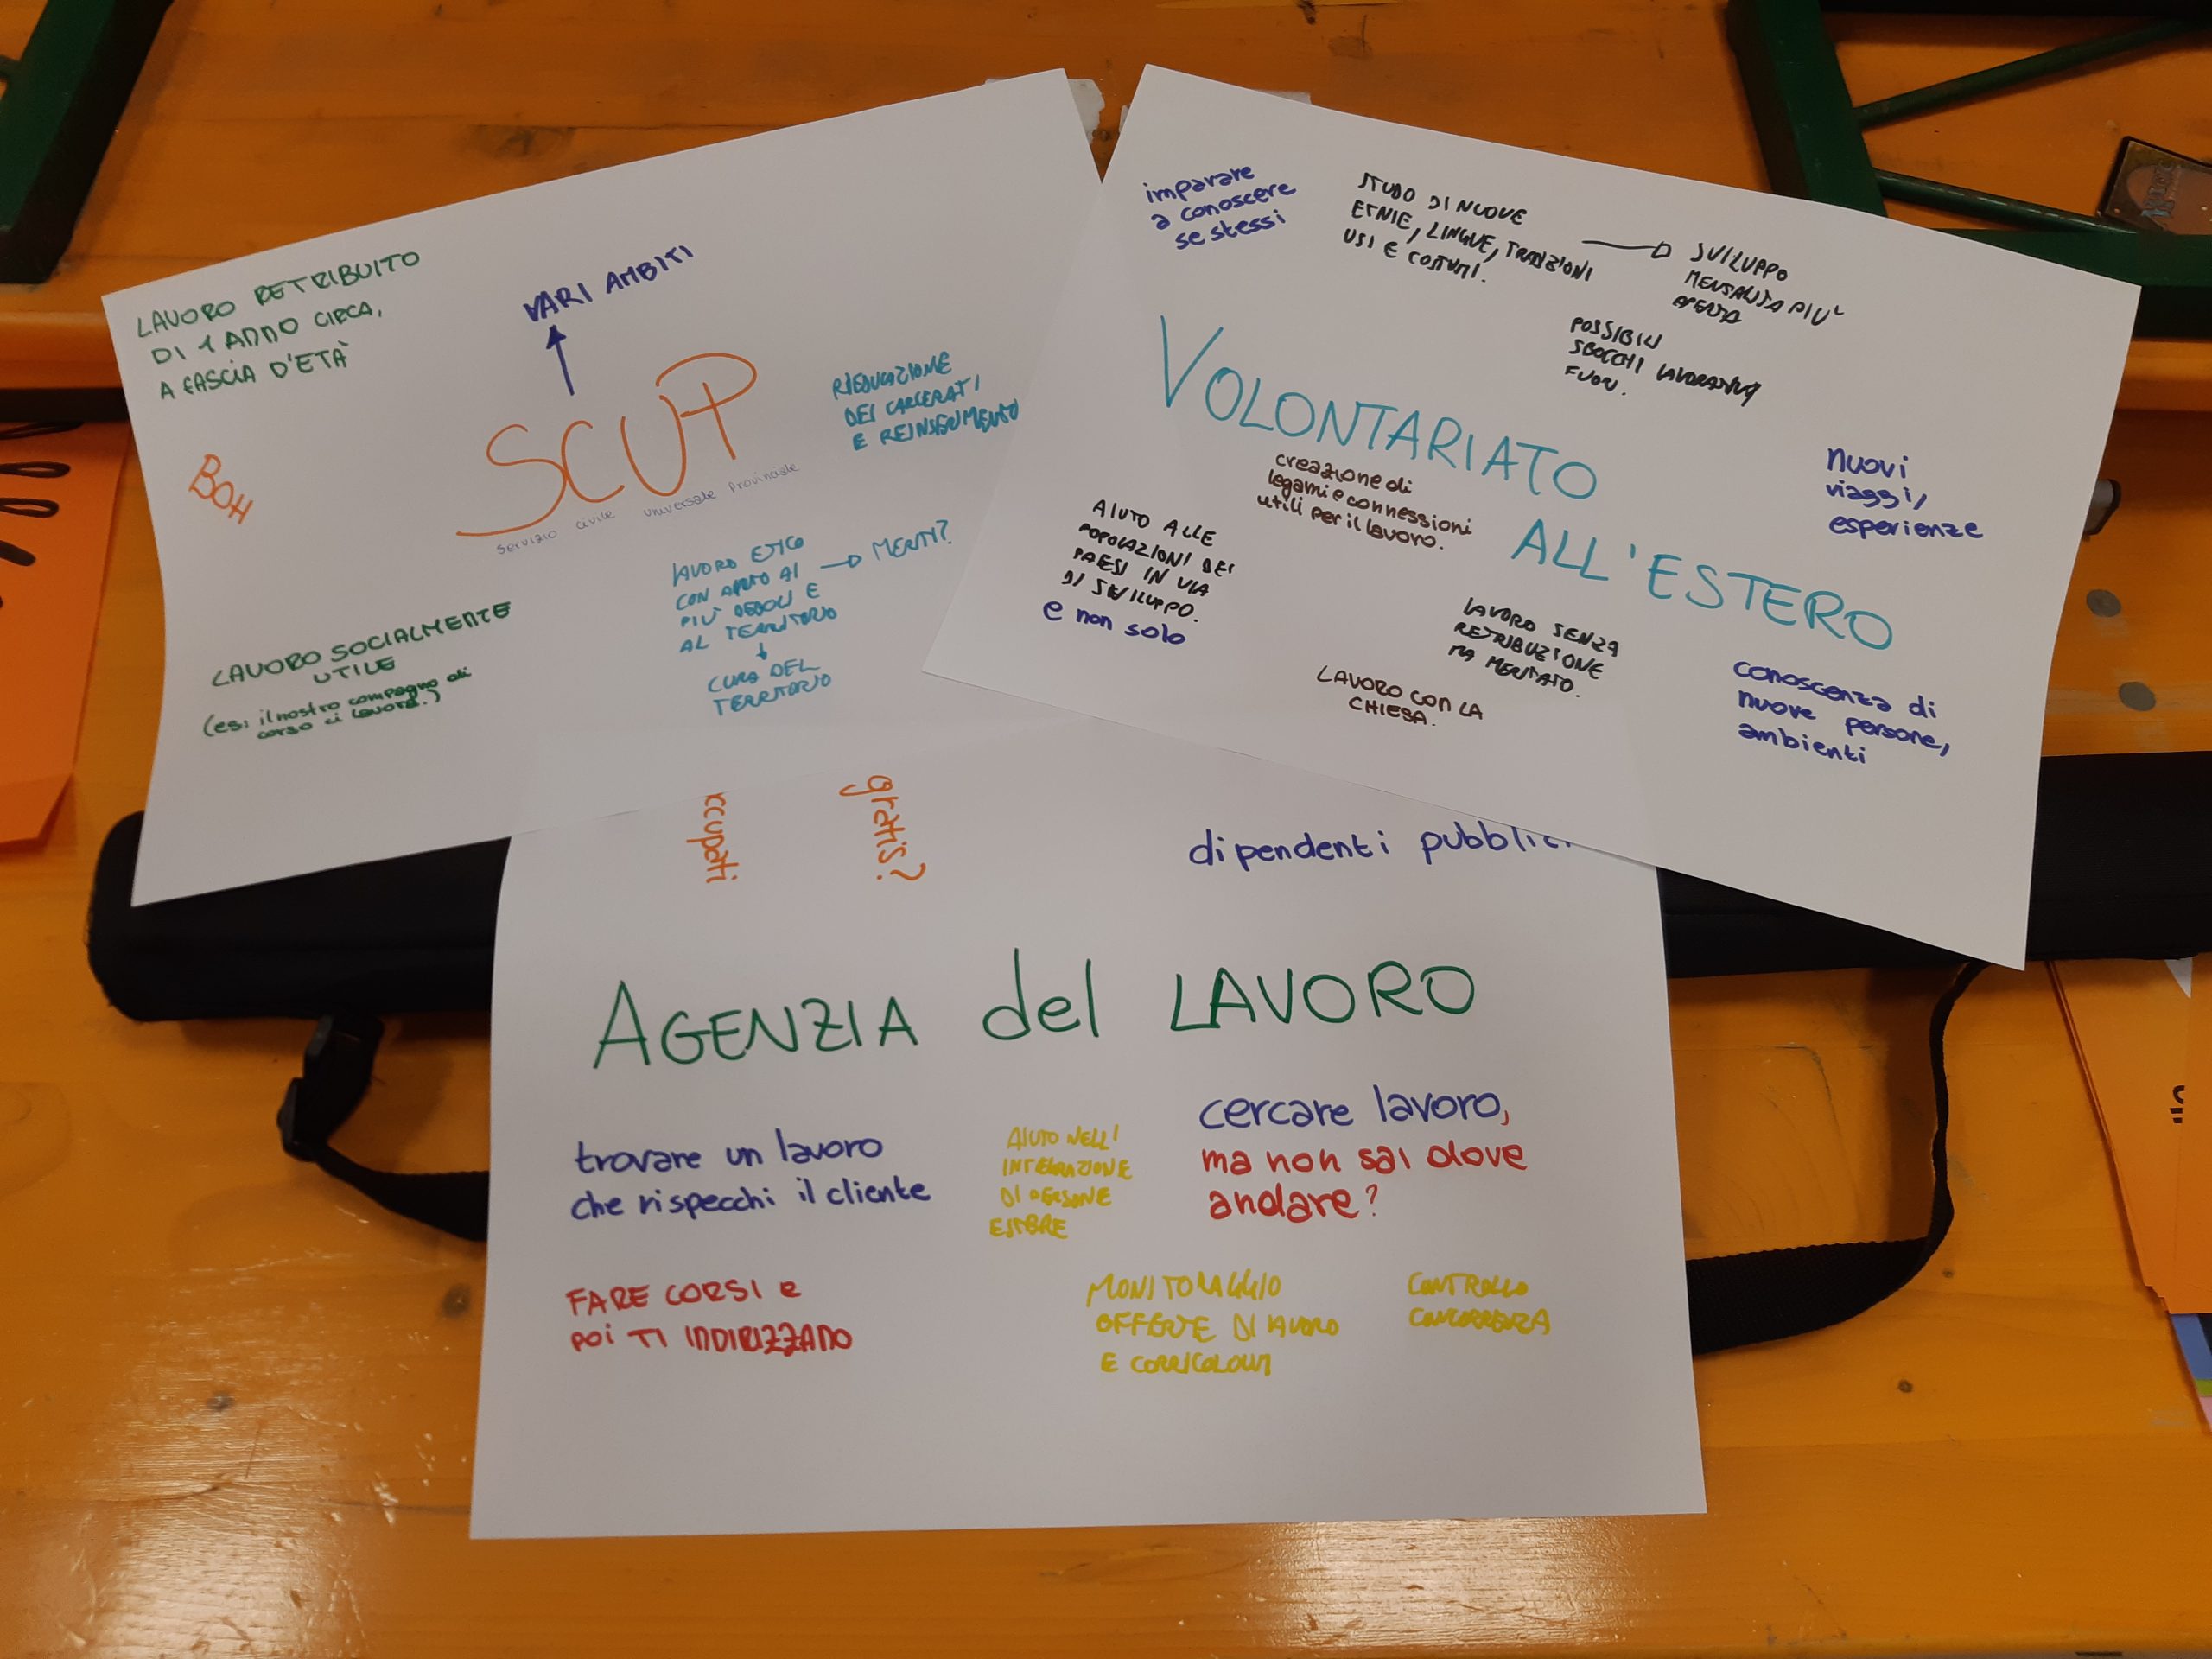 LAVORO RETRIBUITO
DI 1 ANNO CIRCA,
A FASCIA D'ETÀ
VARI AMBITI
SCUP
servizio civile universale provinciale
RIEDUCAZIONE
DEI CARCERATI
E REINSERIMENTO
BOH
LAVORO ETICO
CON AIUTO AI
PIÙ DEBOLI E
AL TERRITORIO
MERITI?
CURA DEL
TERRITORIO
LAVORO SOCIALMENTE
UTILE
(es: il nostro compagno di
corso ci lavora.)
imparare
a conoscere
se stessi
STUDO DI NUOVE
ETNIE, LINGUE, TRADIZIONI
USI E COSTUMI.
SVILUPPO
MENTALITÀ PIÙ
APERTA
POSSIBILI
SBOCCHI LAVORATIVI
FUORI.
VOLONTARIATO
ALL'ESTERO
creazione di
legami e connessioni
utili per il lavoro.
nuovi
viaggi,
esperienze
AIUTO ALLE
POPOLAZIONI DEI
PAESI IN VIA
DI SVILUPPO.
e non solo
LAVORO SENZA
RETRIBUZIONE
MA MERITATO.
LAVORO CON LA
CHIESA.
conoscenza di
nuove persone,
ambienti
ccupati
gratis?
dipendenti pubblici
AGENZIA del LAVORO
trovare un lavoro
che rispecchi il cliente
AIUTO NELL'
INTEGRAZIONE
DI PERSONE
ESTERE
cercare lavoro,
ma non sai dove
andare?
FARE CORSI e
poi TI INDIRIZZANO
MONITORAGGIO
OFFERTE DI LAVORO
E CORRICOLUM
CONTROLLO
CONCORRENZA